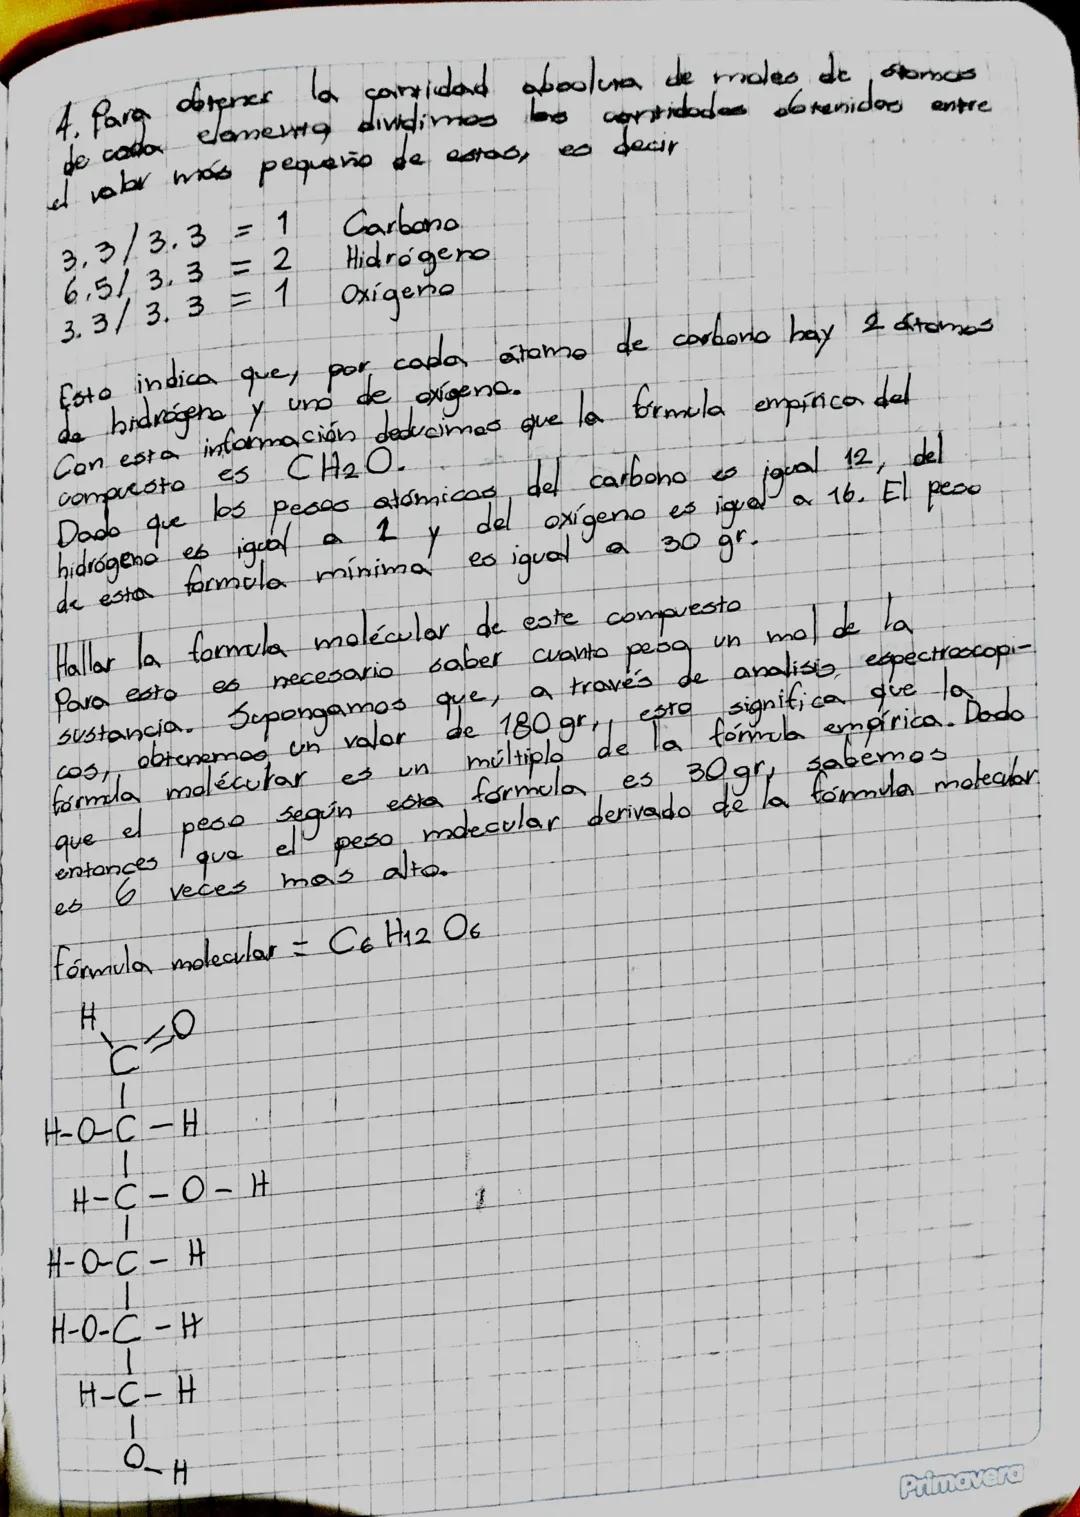 4. Para obtener la cantidad absoluta de moles de átomos
de cada elemento dividimos las cantidades obtenidas entre
el valor más pequeño de estas, es decir
3.3/3.3 = 1 Carbono
6.5/3.3 = 2 Hidrógeno
3.3/3.3 = 1 Oxígeno
Esto indica que, por cada átomo de carbono hay 2 átomos
de hidrógeno y uno de oxígeno.
Con esta información deducimos que la fórmula empírica del
compuesto es CH2O.
Dado que los pesos atómicos del carbono es igual 12, del
hidrógeno es igual a 1 y del oxígeno es igual a 16. El peso
de esta formula mínima es igual a 30 gr.
Hallar la formula molécular de este compuesto
Para esto es necesario saber cuanto pesa un mol de la
sustancia. Supongamos que, a través de analisis espectroscopi-
cos, obtenemos un valor de 180 gr, esto significa que la
fórmula molécular es un múltiplo de la fórmula empírica. Dado
que el peso según esta fórmula es 30 gr, sabemos
entonces que el peso molecular derivado de la fórmula molecular
es 6 veces mas alto.
fórmula molecular = C6 H12 O6
H
C=O
H-O-C-H
H-C-O-H
H-O-C-H
H-O-C-H
H-C-H
O-H
Primavera